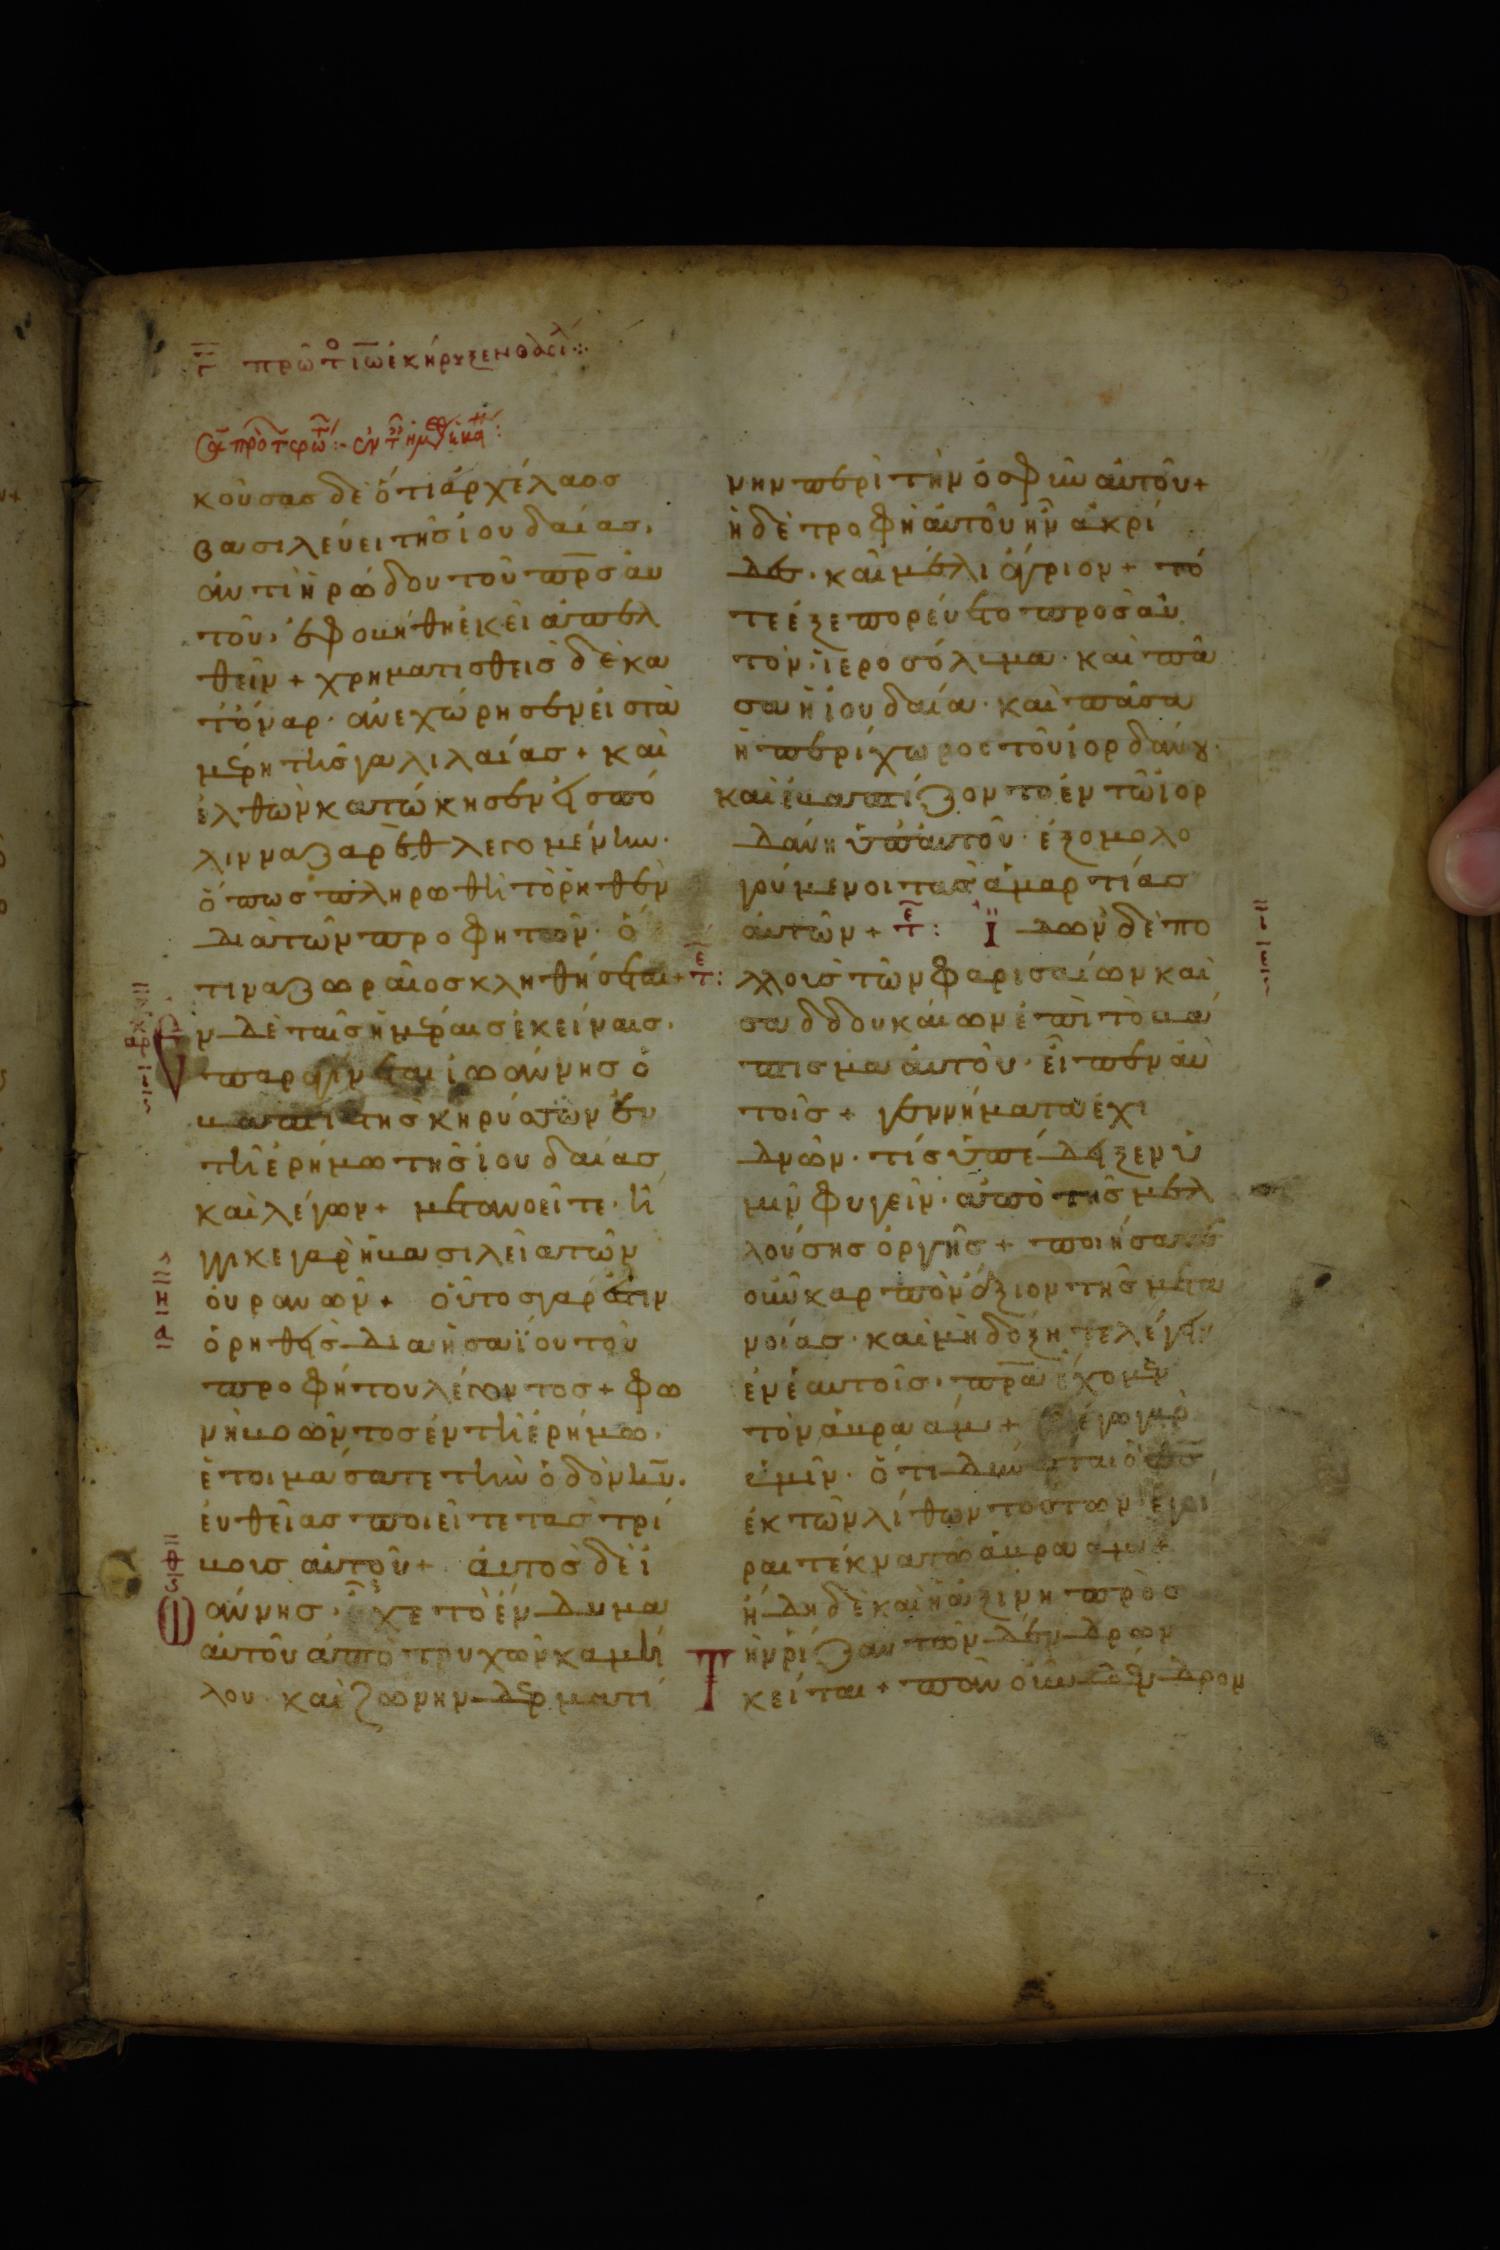 κούσας δὲ ὅτι ἀρχέλαος
βασιλεύει τῆς ἰουδαίας,
ἀντὶ ἡρώδου τοῦ πρς αὐ
τοῦ, ἐφοβήθη ἐκεῖ ἀπελ
θεῖν + χρηματισθεὶς δὲ κα
τόναρ· ἀνεχώρησεν εἰς τὰ
μέρη τῆς γαλιλαίας + καὶ
ἐλθὼν κατώκησεν εἰς πό
λιν ναζαρὲθ λεγομένην·
ὅπως πληρωθῆ τὸ ῥηθὲν
διὰ τῶν προφητῶν· ὅ
τι ναζωραῖος κληθήσεται +
ν δὲ ταῖς ἡμέραις ἐκείναις·
παραγίνεται ἰωάννης ὁ
βαπτιστης κηρύσσων ἐν
τῆ ἐρήμω τῆς ἰουδαίας
καὶ λέγων + μετανοεῖτε· ἤ
γγικε γαρ ἡ βασιλεία τῶν
οὐρανῶν + οὗτος γάρ ἐστιν
ὁ ρηθεὶς δια ἡσαΐου τοῦ
προφήτου λέγοντος + φω
νὴ βοῶντος ἐν τῆ ἐρήμω·
ἑτοιμάσατε τὴν ὁδὸν κῦ·
εὐθείας ποιεῖτε τὰς τρί
βους αὐτοῦ + ἀυτὸς δὲ ἰ
ωάννης· εἶχε τὸ ἔνδυμα
αὐτοῦ ἀπὸ τριχῶν καμή
λου· καὶ ζώνην δερματί
νην περὶ τὴν ὀσφὺν αὐτοῦ +
ἡ δὲ τροφὴ αὐτοῦ ἦν ἀκρί
δες· καὶ μέλι ἄγριον + τό
τε ἐξεπορεύετο προς αὐ
τὸν· ἱεροσόλυμα· καὶ πᾶ
σα ἡ ἰουδαία· καὶ πᾶσα
ἡ περίχωρος τοῦ ἰορδάνου·
καὶ ἐβαπτίζοντο ἐν τῶ ἰορ
δάνη ὑπ' αὐτοῦ· ἐξομολο
γούμενοι τὰς ἁμαρτίας
αὐτῶν + ἰδὼν δὲ πο
λλοὺς τῶν φαρισαίων καὶ
σαδδουκαίων ἐπὶ τὸ βά
πτισμα αὐτοῦ· εἶπεν αὐ
τοῖς + γεννήματα ἐχι
δνῶν· τίς ὑπέδειξεν ὑ
μῖν φυγεῖν· ἀπὸ τῆς μελ
λούσης ὀργῆς + ποιήσατε
οὖν καρπὸν ἄξιον τῆς μετα
νοίας· καὶ μὴ δόξητε λέγειν
ἐν ἑαυτοῖς· πρα ἔχομεν
τὸν ἀβραάμ + λέγω γὰρ
ὑμῖν· ὅτι δύναται ὁ θς
ἐκ τῶν λίθων τούτων ἐγεῖ
ραι τέκνα τῶ ἀβραάμ +
ἤδη δὲ καὶ ἡ ἀξίνη πρὸς
τὴν ρίζαν τῶν δένδρων
κεῖται + πᾶν οὖν δένδρον